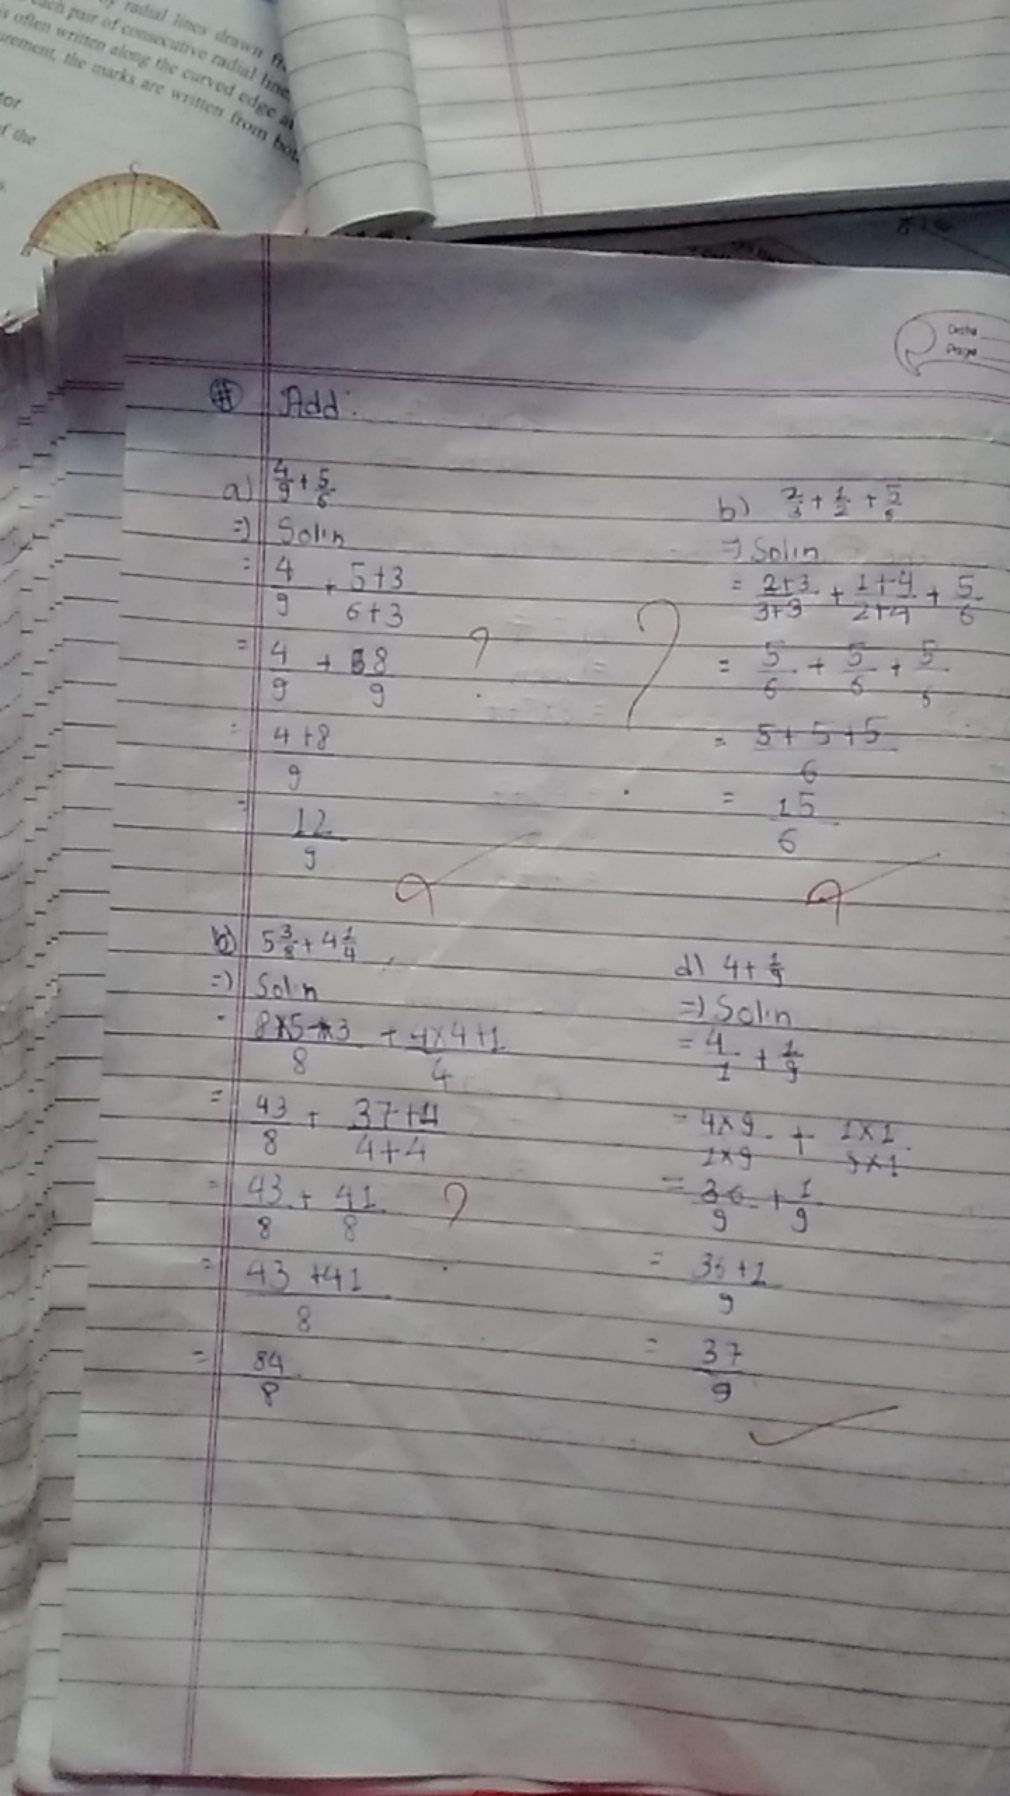 by radial lines drawn
each pair of consecutive radial line
is often written along the curved edge
urement, the marks are written from
of the
Date
Page
# Add:
a) 4/9 + 5/6
=) Soln
= 4/9 + 5+3/6+3
= 4/9 + 8/9
= 4+8/9
= 12/9
b) 2/3 + 1/2 + 5/6
=) Soln
= 2+3/3+3 + 1+4/2+4 + 5/6
= 5/6 + 5/6 + 5/6
= 5+5+5/6
= 15/6
b) 5 3/8 + 4 1/4
=) Soln
= 8×5+3/8 + 4×4+1/4
= 43/8 + 37+4/4+4
= 43/8 + 41/8
= 43+41/8
= 84/8
d) 4 + 1/9
=) Soln
= 4/1 + 1/9
= 4×9/1×9 + 1×1/9×1
= 36/9 + 1/9
= 36+1/9
= 37/9